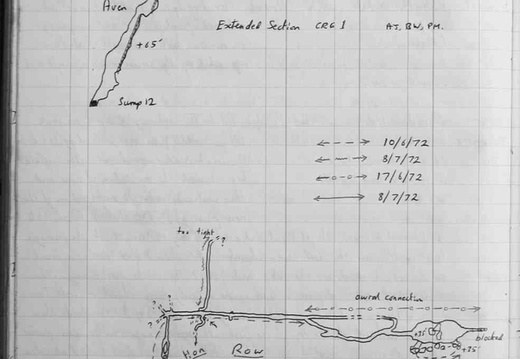 Aven
Extended Section CRG 1 AJ, BW, PM.
+65'
Sump 12
10/6/72
8/7/72
17/6/72
8/7/72
too tight
?
awral connection
? ?
?
+35'
blocked
+25'
Row